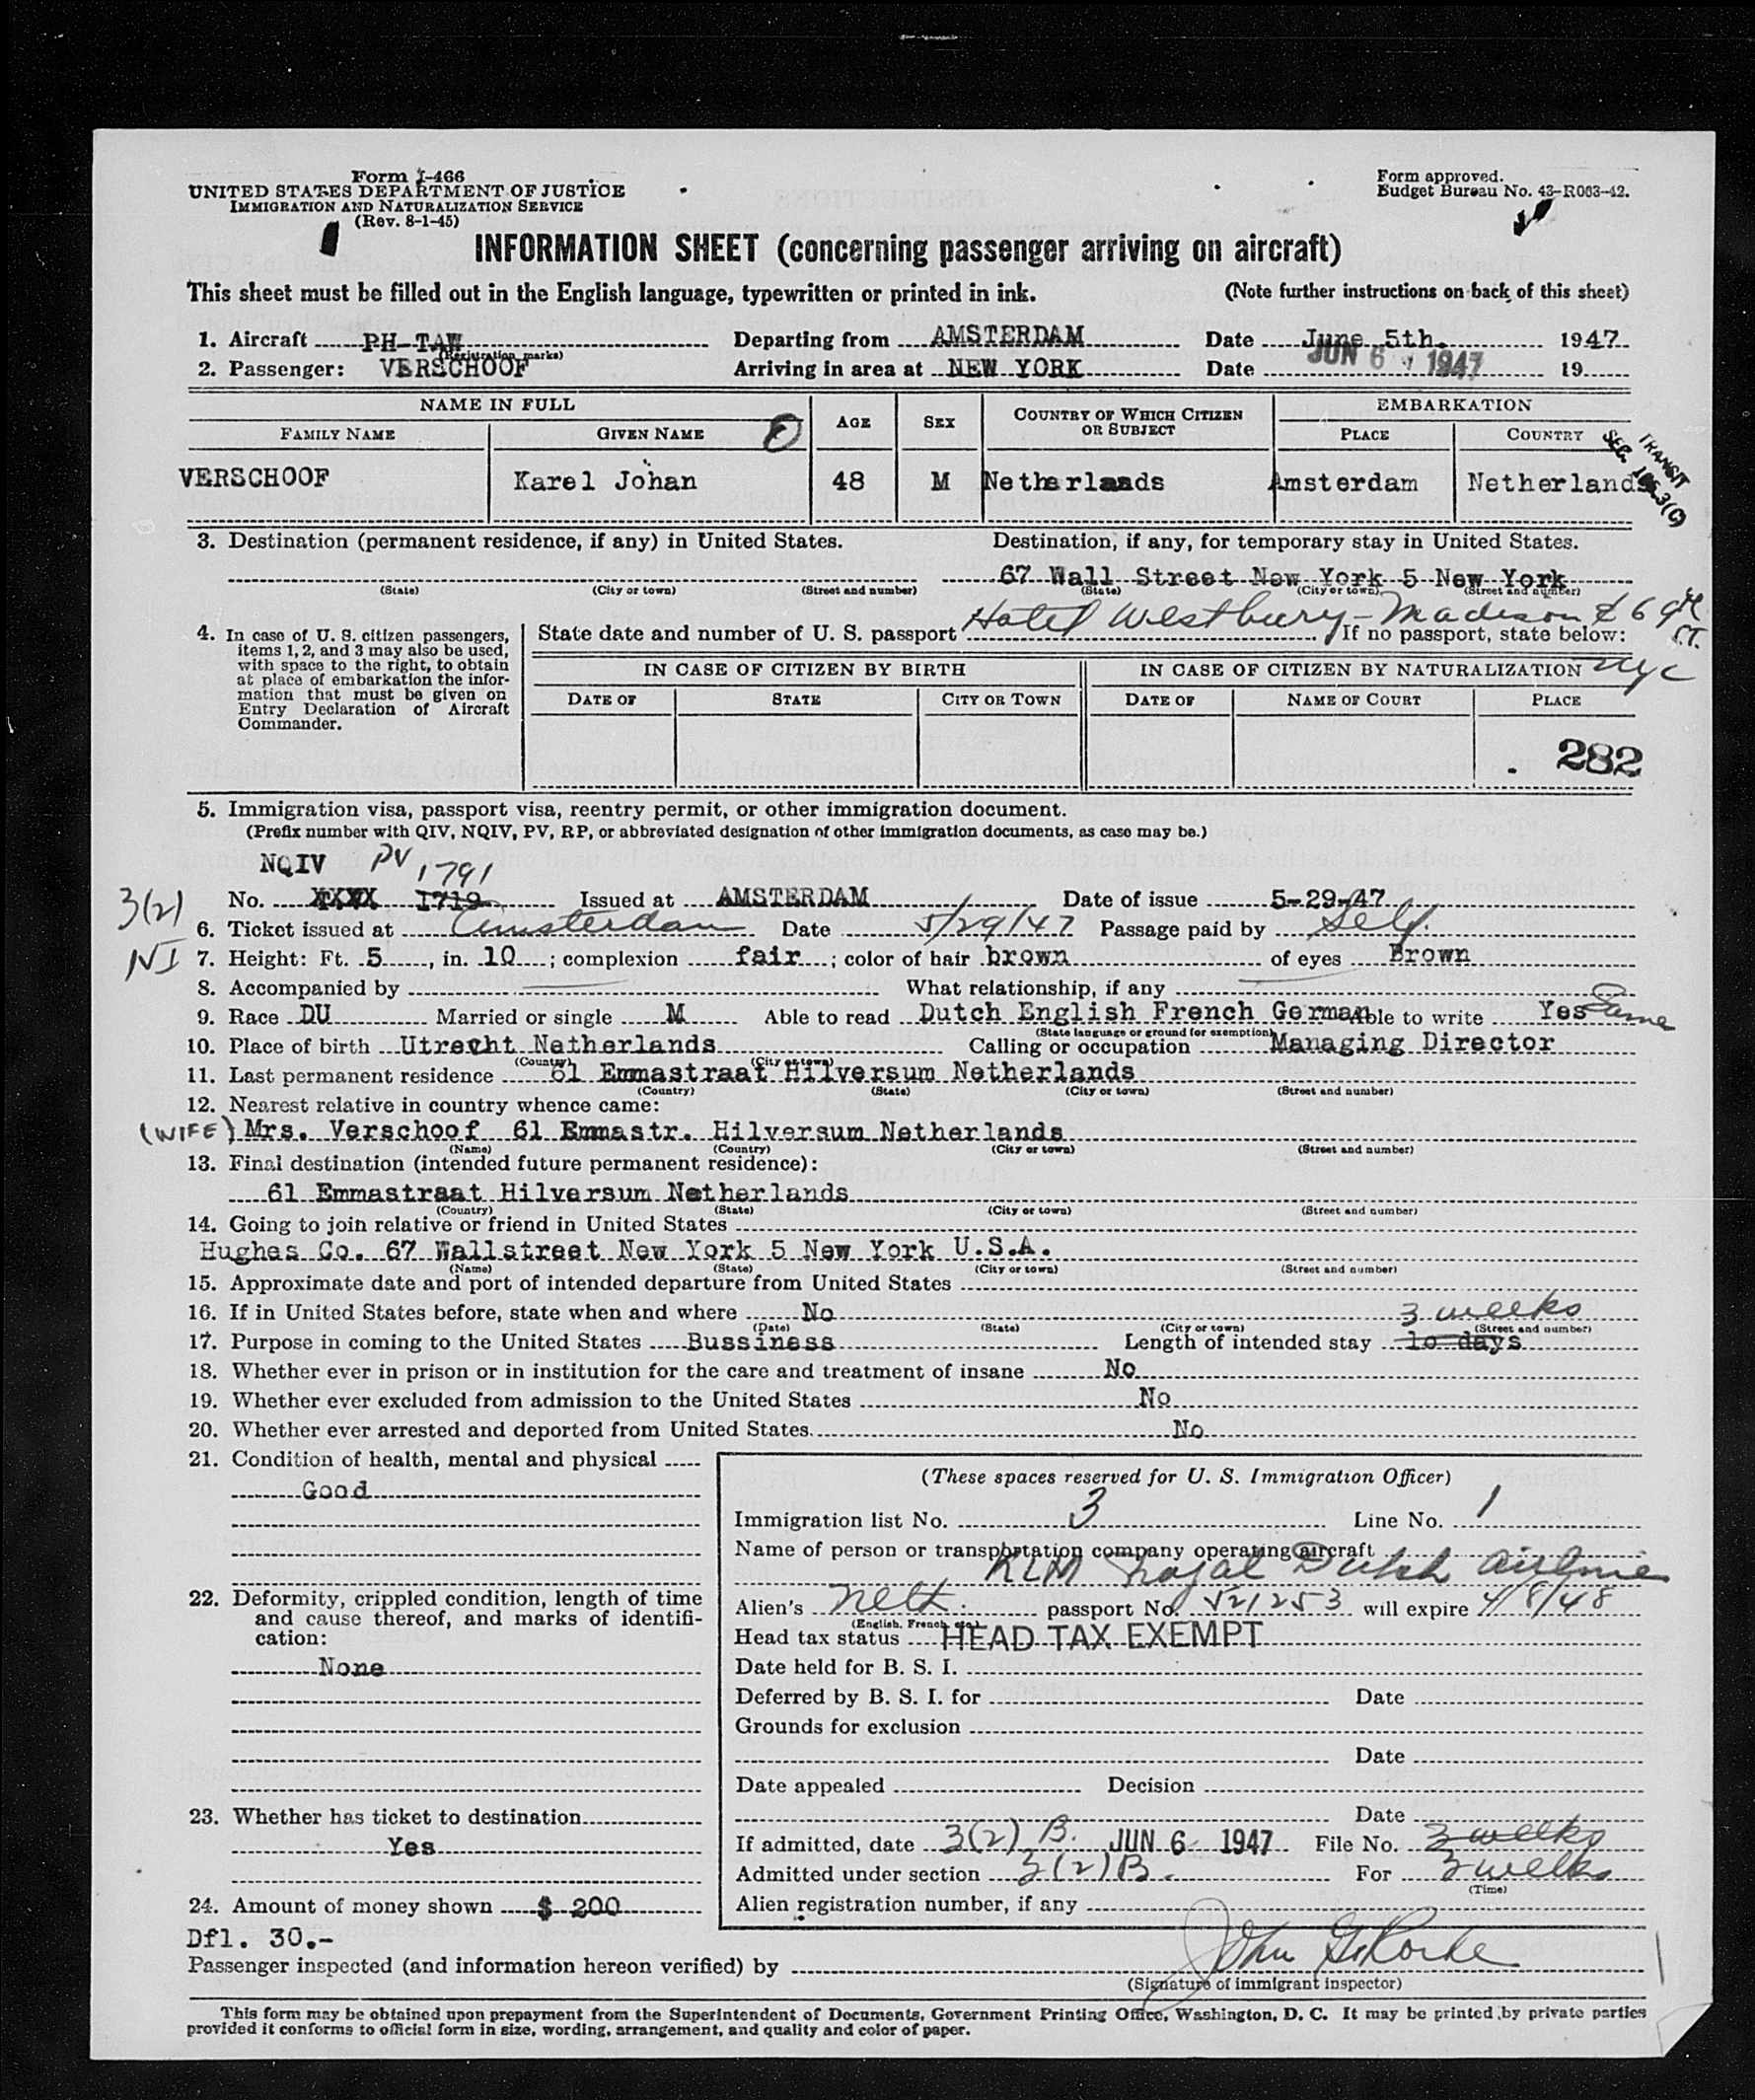 Form I-466
UNITED STATES DEPARTMENT OF JUSTICE
IMMIGRATION AND NATURALIZATION SERVICE
(Rev. 8-1-45)
Form approved.
Budget Bureau No. 43-R063-42.
INFORMATION SHEET (concerning passenger arriving on aircraft)
This sheet must be filled out in the English language, typewritten or printed in ink. (Note further instructions on back of this sheet)
1. Aircraft PH-TAW Departing from AMSTERDAM Date June 5th. 1947
(Registration marks)
2. Passenger: VERSCHOOF Arriving in area at NEW YORK Date JUN 6 1947 19
NAME IN FULL AGE SEX COUNTRY OF WHICH CITIZEN OR SUBJECT EMBARKATION
FAMILY NAME GIVEN NAME PLACE COUNTRY
TRANSIT
SEC. 3(
VERSCHOOF Karel Johan 48 M Netherlands Amsterdam Netherlands
3. Destination (permanent residence, if any) in United States. Destination, if any, for temporary stay in United States.
67 Wall Street New York 5 New York
(State) (City or town) (Street and number) (State) (City or town) (Street and number)
Hotel Westbury - Madison & 69th ST.
NYC
4. In case of U. S. citizen passengers, items 1, 2, and 3 may also be used, with space to the right, to obtain at place of embarkation the information that must be given on Entry Declaration of Aircraft Commander.
State date and number of U. S. passport . If no passport, state below:
IN CASE OF CITIZEN BY BIRTH IN CASE OF CITIZEN BY NATURALIZATION
DATE OF STATE CITY OR TOWN DATE OF NAME OF COURT PLACE
282
5. Immigration visa, passport visa, reentry permit, or other immigration document.
(Prefix number with QIV, NQIV, PV, RP, or abbreviated designation of other immigration documents, as case may be.)
NQIV PV 1791
3(2) No. XXXX 1719 Issued at AMSTERDAM Date of issue 5-29-47
6. Ticket issued at Amsterdam Date 5/29/47 Passage paid by Self.
NI 7. Height: Ft. 5, in. 10; complexion fair; color of hair brown of eyes Brown
8. Accompanied by What relationship, if any
9. Race DU Married or single M Able to read Dutch English French German Able to write Yes Same
(State language or ground for exemption)
10. Place of birth Utrecht Netherlands Calling or occupation Managing Director
(Country) (City or town)
11. Last permanent residence 61 Emmastraat Hilversum Netherlands
(Country) (State) (City or town) (Street and number)
12. Nearest relative in country whence came:
(WIFE) Mrs. Verschoof 61 Emmastr. Hilversum Netherlands
(Name) (Country) (City or town) (Street and number)
13. Final destination (intended future permanent residence):
61 Emmastraat Hilversum Netherlands
(Country) (State) (City or town) (Street and number)
14. Going to join relative or friend in United States
Hughes Co. 67 Wallstreet New York 5 New York U.S.A.
(Name) (State) (City or town) (Street and number)
15. Approximate date and port of intended departure from United States
16. If in United States before, state when and where No 3 weeks
(Date) (State) (City or town) (Street and number)
17. Purpose in coming to the United States Bussiness Length of intended stay 10 days
18. Whether ever in prison or in institution for the care and treatment of insane No
19. Whether ever excluded from admission to the United States No
20. Whether ever arrested and deported from United States. No
21. Condition of health, mental and physical
Good
22. Deformity, crippled condition, length of time and cause thereof, and marks of identification:
None
23. Whether has ticket to destination
Yes
24. Amount of money shown $ 200
Dfl. 30.-
(These spaces reserved for U. S. Immigration Officer)
Immigration list No. 3 Line No. 1
Name of person or transportation company operating aircraft
KLM Royal Dutch Airline
Alien's Neth. passport No. 521253 will expire 4/8/48
(English, French, etc.)
Head tax status HEAD TAX EXEMPT
Date held for B. S. I.
Deferred by B. S. I. for Date
Grounds for exclusion
Date
Date appealed Decision
Date
If admitted, date 3(2) B. JUN 6 1947 File No. 3 weeks
Admitted under section 3(2)B. For 3 weeks
(Time)
Alien registration number, if any
Passenger inspected (and information hereon verified) by
(Signature of immigrant inspector)
This form may be obtained upon prepayment from the Superintendent of Documents, Government Printing Office, Washington, D. C. It may be printed by private parties
provided it conforms to official form in size, wording, arrangement, and quality and color of paper.